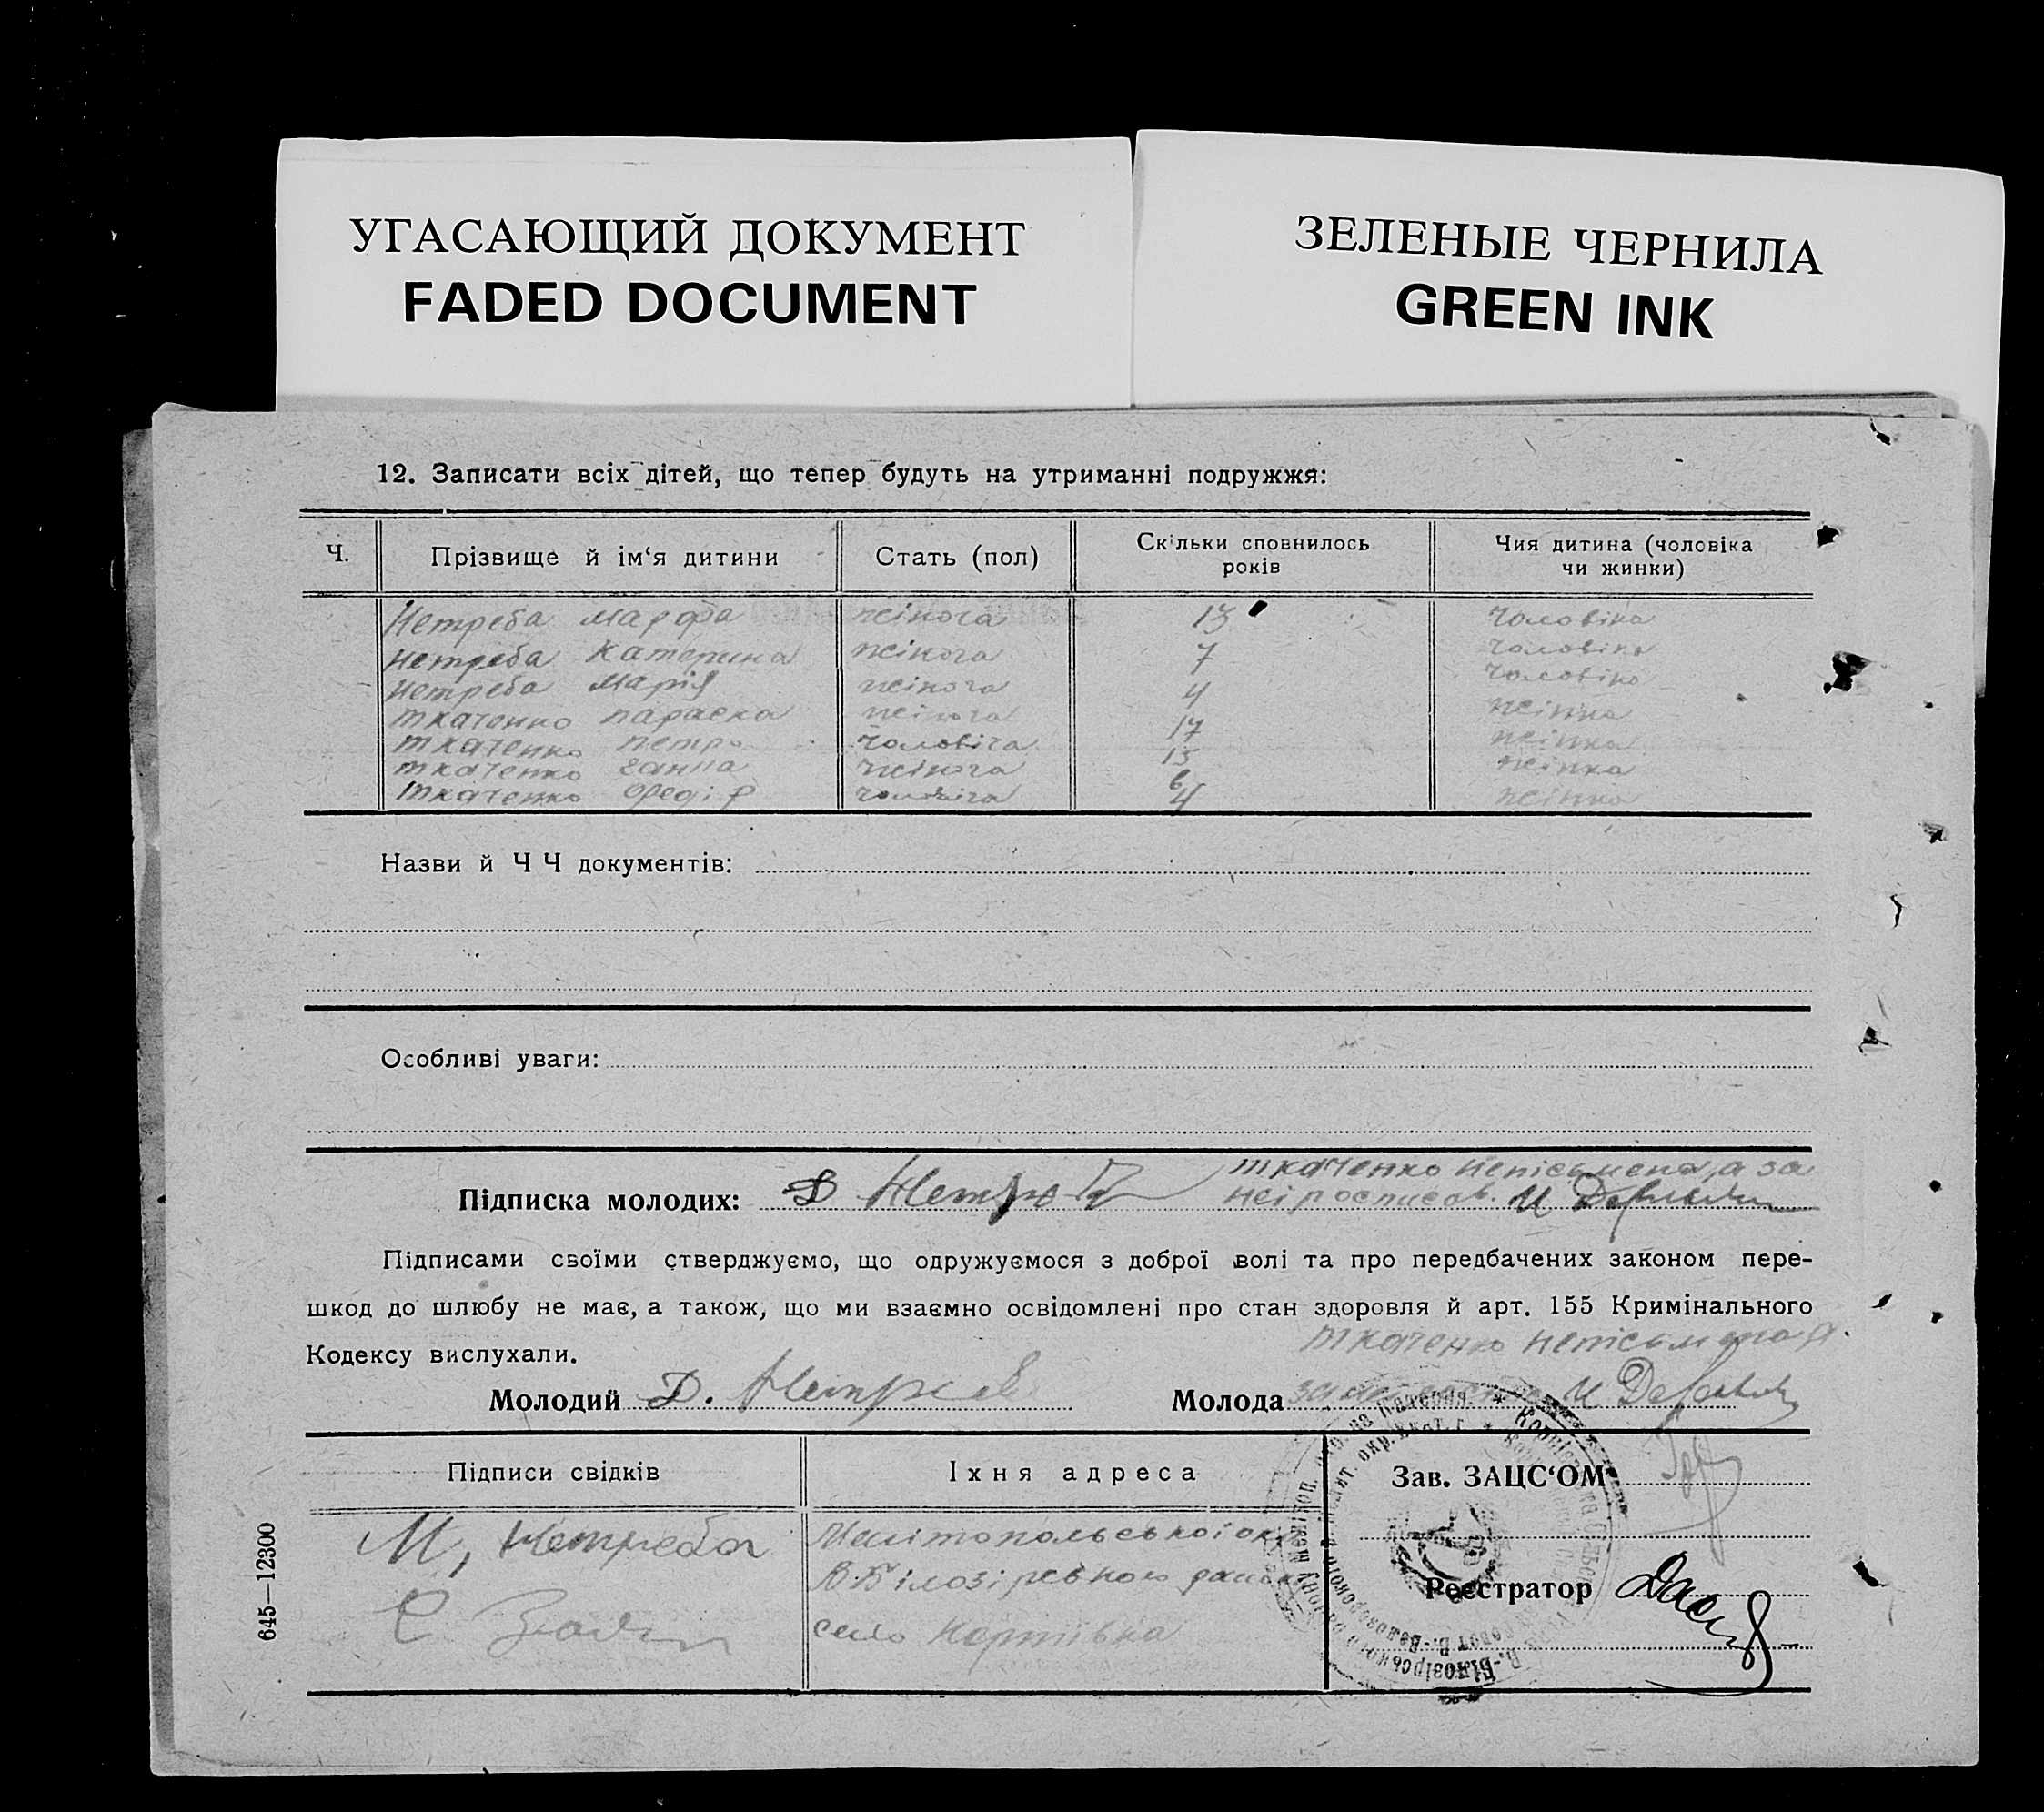 УГАСАЮЩИЙ ДОКУМЕНТ
FADED DOCUMENT
ЗЕЛЕНЫЕ ЧЕРНИЛА
GREEN INK
12. Записати всіх дітей, що тепер будуть на утриманні подружжя:
Ч. Прізвище й ім‘я дитини Стать (пол) Скільки сповнилось років Чия дитина (чоловіка чи жинки)
Нетреба Марфа жіноча 13 чоловіка
Нетреба Катерина жіноча 7 чоловіка
Нетреба Марія жіноча 4 чоловіка
Ткаченко Параска жіноча 17 жінка
Ткаченко Петро чоловіча 15 жінка
Ткаченко Ганна жіноча 6 жінка
Ткаченко Федір чоловіча 4 жінка
Назви й Ч Ч документів:
Особливі уваги:
Ткаченко непісьмена, а за
Підписка молодих: неі росписав. И
Підписами своїми стверджуємо, що одружуємося з доброї волі та про передбачених законом пере-
шкод до шлюбу не має, а також, що ми взаємно освідомлені про стан здоровля й арт. 155 Кримінального
Кодексу вислухали.
Ткаченко непісьмена а
Молодий Д. Нетреб Молода
Підписи свідків Іхня адреса Зав. ЗАЦС‘ОМ
М, Нетреба Мелітопольськоі окр
В-Білозірського
село
Реєстратор
645—12300